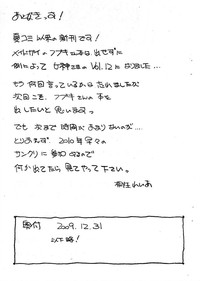 あとがきっす!
夏コミ以来の新刊です!
メイルガイのフブキさん本は出せずに
例によって女神さまのVol.12になりました…
もう何回言っているかは忘れましたが
次回こそ、フブキさんの本を
出したいと思いまっす
でも次まで時間があまりないので…
とりあえず、2010年早々の
サンクリに参加するので
何か出てたら見てやって下さい。
奥付 2009.12.31
以下略!